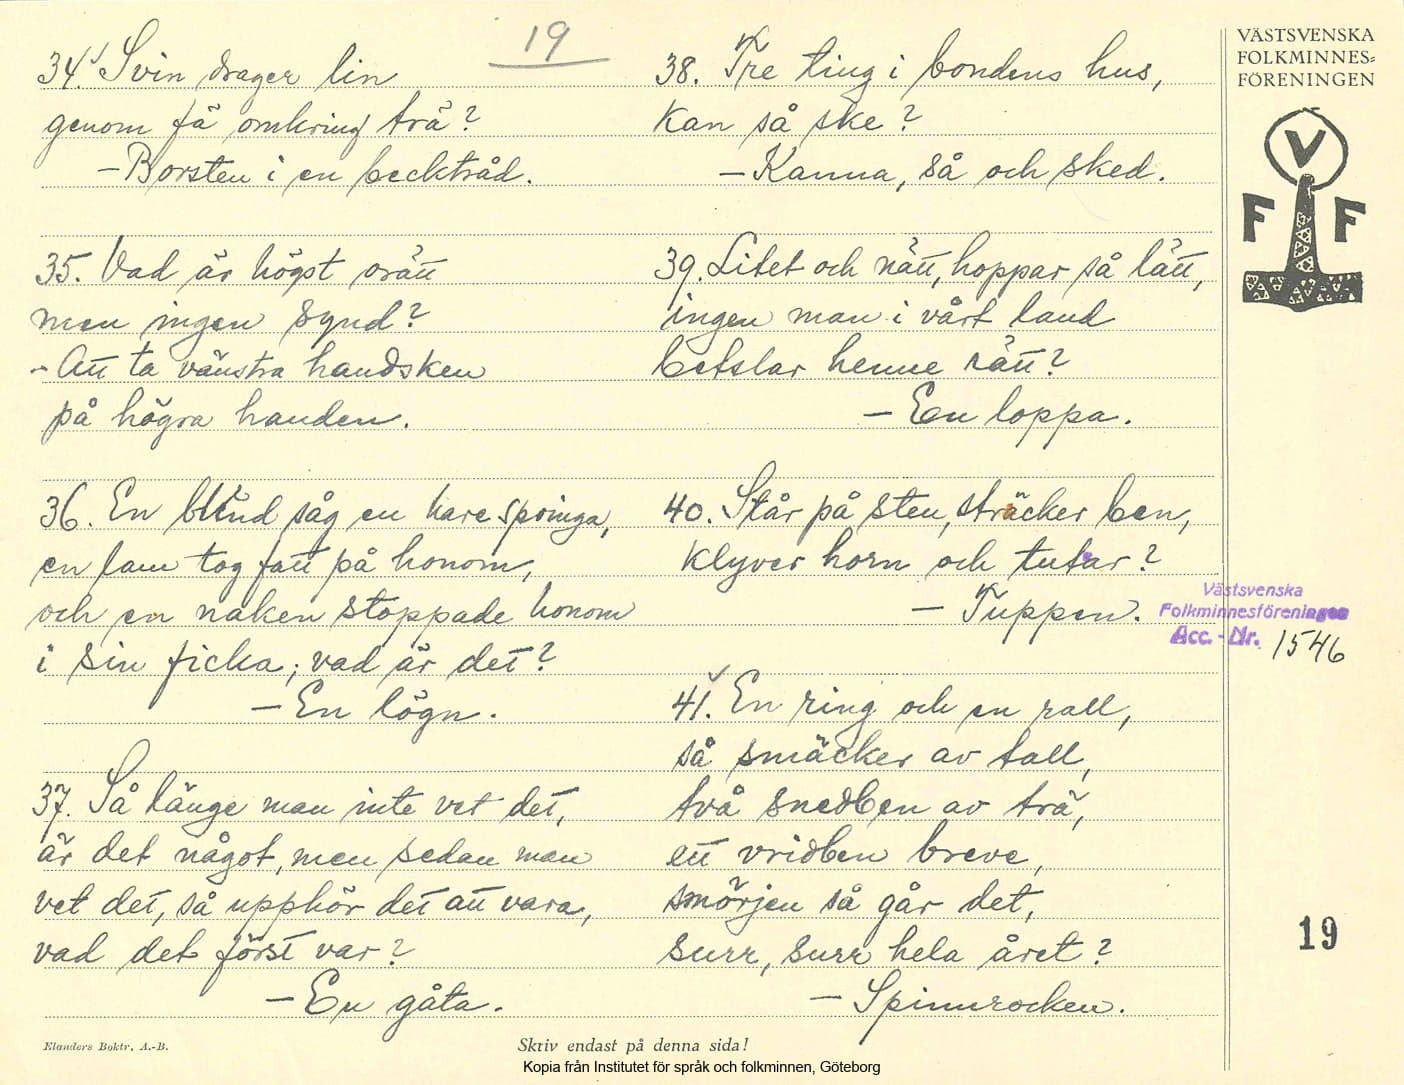 19
34. Svin drager lin
genom fä omkring trä?
- Borsten i en becktråd.
35. Vad är högst orätt
men ingen synd?
- Att ta vänstra handsken
på högra handen.
36. En blind såg en hare springa,
en lam tog fatt på honom,
och en naken stoppade honom
i sin ficka; vad är det?
- En lögn.
37. Så länge man inte vet det,
är det något, men sedan man
vet det, så upphör det att vara,
vad det först var?
- En gåta.
38. Tre ting i bondens hus,
kan så ske?
- Kanna, så och sked.
39. Litet och nätt, hoppar så lätt,
ingen man i vårt land
betslar henne rätt?
- En loppa.
40. Står på sten, sträcker ben,
klyver horn och tutar?
- Tuppen.
41. En ring och en rall,
så smäcker av tall,
två snedben av trä,
ett vridben breve,
smörjen så går det,
surr, surr hela året?
- Spinnrocken.
VÄSTSVENSKA
FOLKMINNES=
FÖRENINGEN
V
F F
Västsvenska
Folkminnesföreningen
Acc.-Nr. 1546
19
Elanders Boktr. A.-B.
Skriv endast på denna sida!
Kopia från Institutet för språk och folkminnen, Göteborg